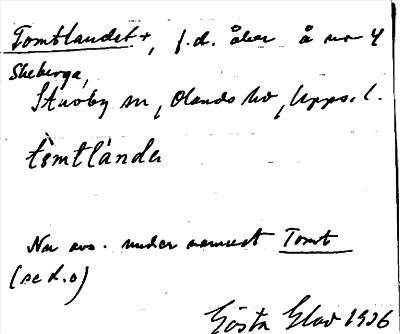 Tomtlandet +, f.d. åker å nr 4
Skeberga,
Stavby sn, Olands hd, Upps. l.
tòmtlándə
Nu avs. under namnet Tomt
(se d.o)
Gösta Elav 1936